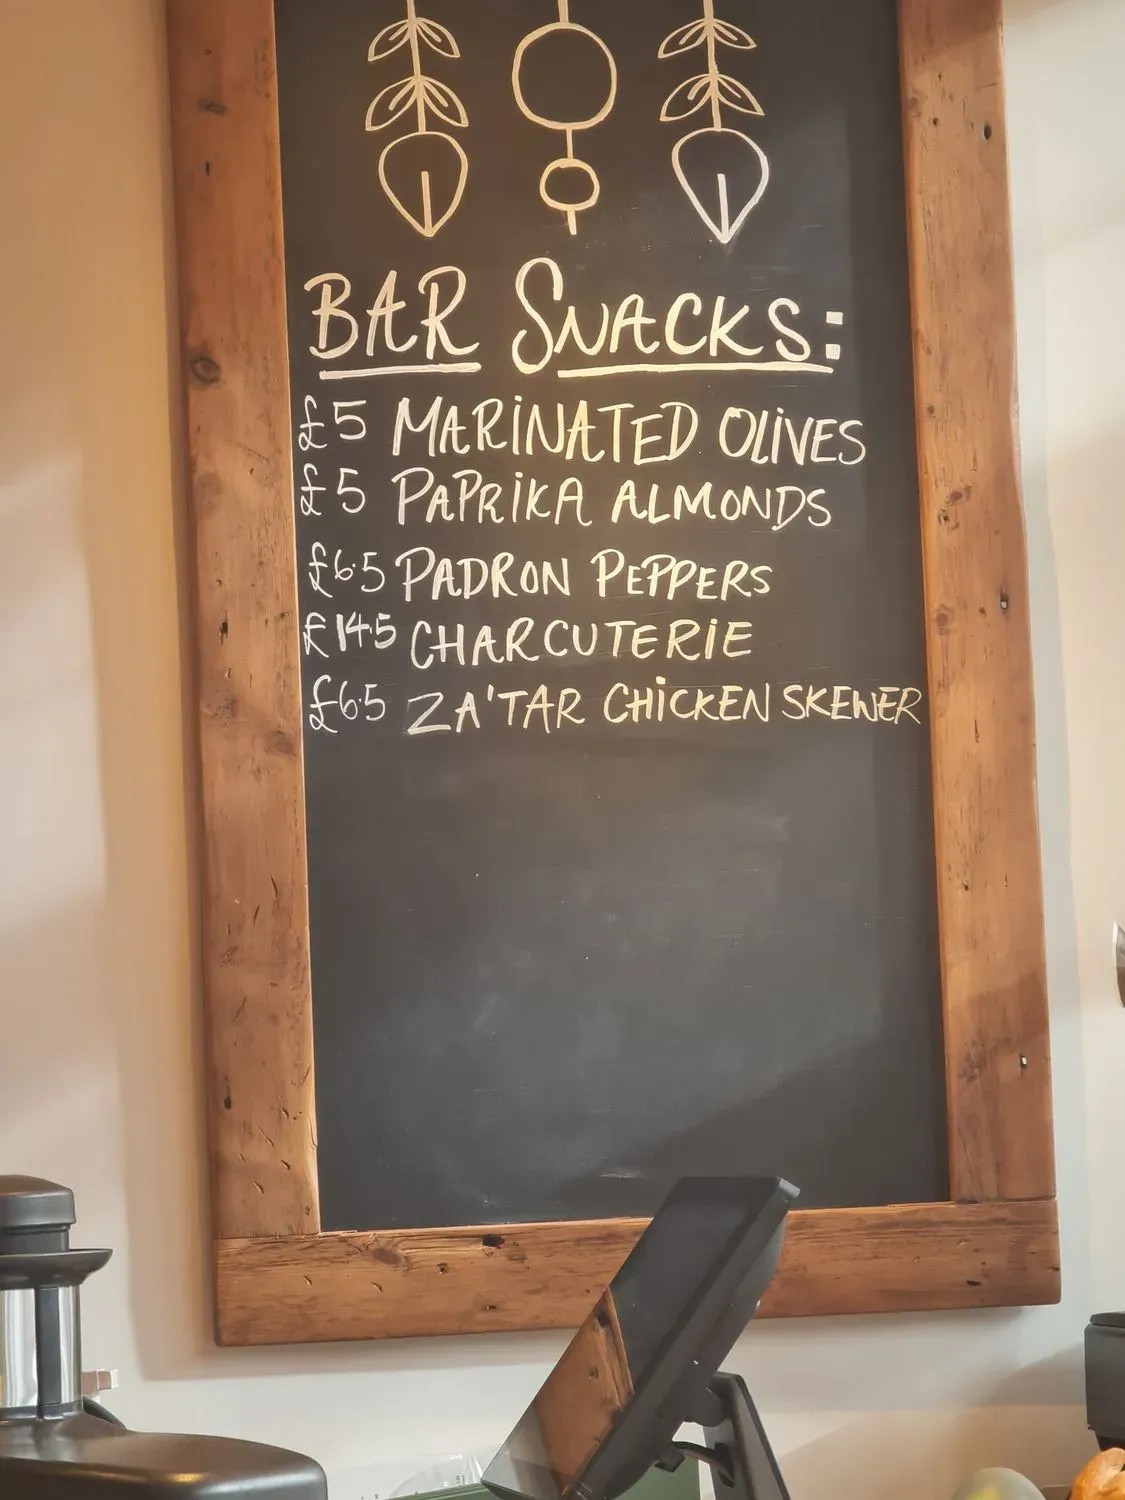 BAR SNACKS:
£5 MARINATED OLIVES
£5 PAPRIKA ALMONDS
£6.5 PADRON PEPPERS
£14.5 CHARCUTERIE
£6.5 ZA'TAR CHICKEN SKEWER